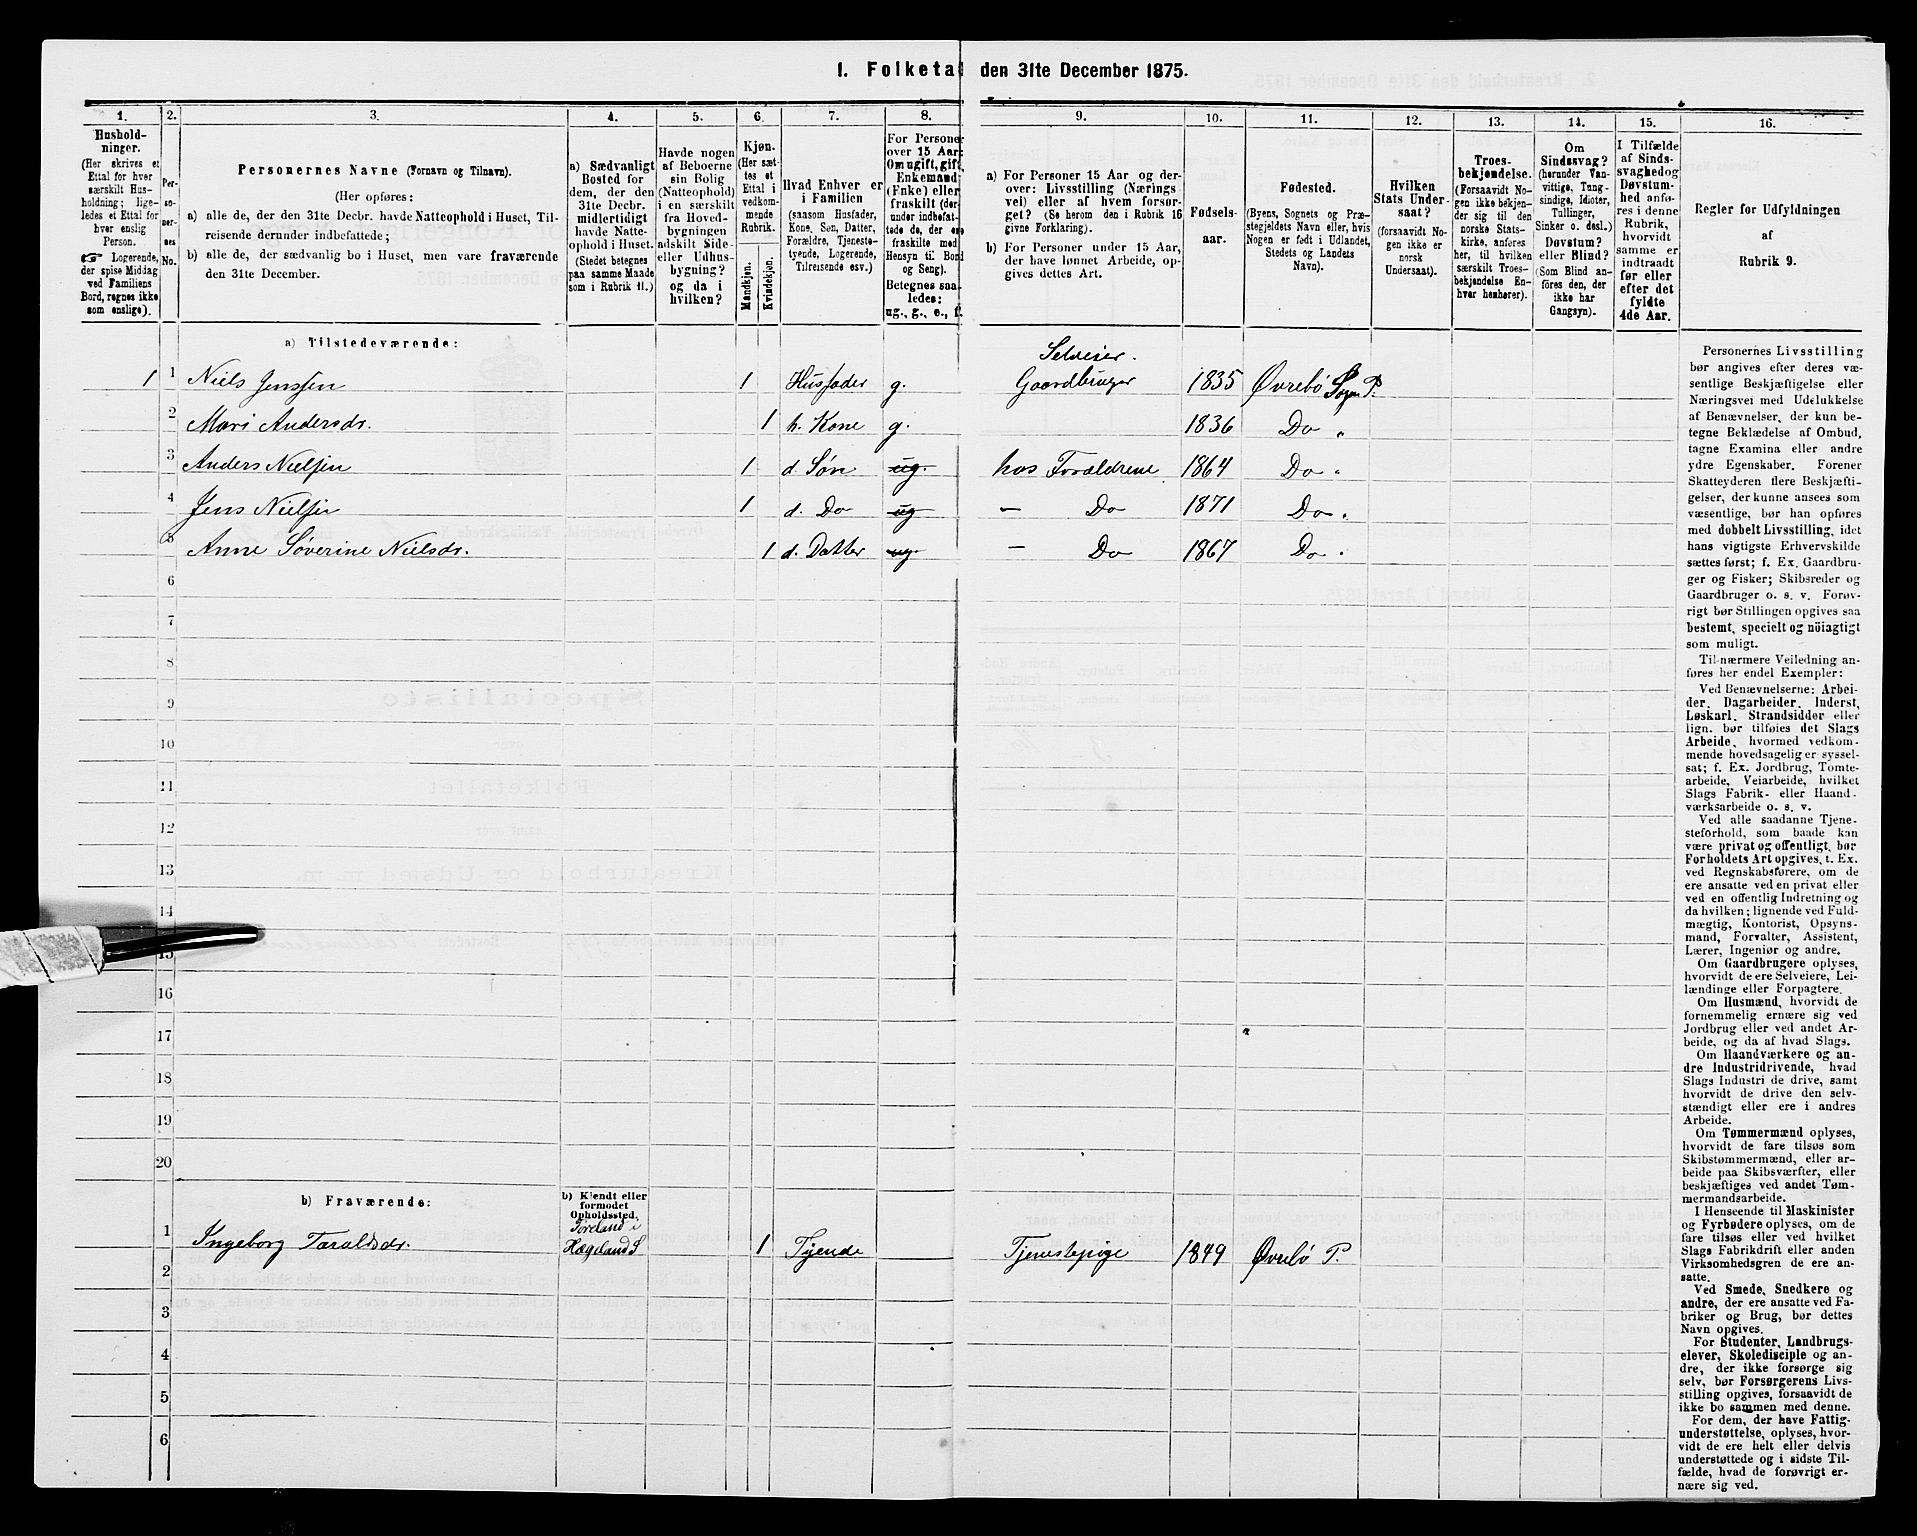 1. Folketal den 31te December 1875.
1. 2. 3. 4. 5. 6. 7. 8. 9. 10. 11. 12. 13. 14. 15. 16.
Hushold-
ninger.
(Her skrives et
Ettal for hver
særskilt Hus-
holdning; lige-
ledes et Ettal for
hver enslig
Person.
☞ Logerende,
der spise Middag
ved Familiens
Bord, regnes ikke
som enslige).
Per-
so-
ner-
nes
No.
Personernes Navne (Fornavn og Tilnavn).
(Her opføres:
a) alle de, der den 31te Decbr. havde Natteophold i Huset, Til-
reisende derunder indbefattede;
b) alle de, der sædvanlig bo i Huset, men vare fraværende
den 31te December.
a) Sædvanligt
Bosted for
dem, der den
31te Decbr.
midlertidigt
havde Natte-
ophold i Huset.
(Stedet betegnes
paa samme Maade
som i Rubrik 11.)
Havde nogen
af Beboerne
sin Bolig
(Natteophold)
i en særskilt
fra Hoved-
bygningen
adskilt Side-
eller Udhus-
bygning?
og da i
hvilken?
Kjøn.
(Her sæt-
tes et
Ettal i
vedkom-
mende
Rubrik.
Mandkjøn.
Kvindekjøn.
Hvad Enhver er
i Familien
(saasom Husfader,
Kone, Søn, Datter,
Forældre, Tjeneste-
tyende, Logerende,
Tilreisende osv.)
For Personer
over 15 Aar:
Om ugift, gift,
Enkemand
(Enke) eller
fraskilt (der-
under indbefat-
tede de, der ere
fraskilte med
Hensyn til Bord
og Seng).
Betegnes saa-
ledes:
ug., g., e., f.
a) For Personer 15 Aar og der-
over: Livsstilling (Nærings-
vei) eller af hvem forsør-
get? (Se herom den i Rubrik 16
givne Forklaring).
b) For Personer under 15 Aar,
der have lønnet Arbeide, op-
gives dettes Art.
Fødsels-
aar.
Fødested.
(Byens, Sognets og Præ-
stegjeldets Navn eller, hvis
Nogen er født i Udlandet,
Stedets og Landets
Navn).
Hvilken
Stats Under-
saat?
(forsaavidt No-
gen ikke er
norsk
Undersaat).
Troes-
bekjendelse.
(Forsaavidt No-
gen ikke bekjen-
der sig til den
norske Stats-
kirke, anføres
her, til hvilken
særskilt Troes-
bekjendelse En-
hver henhører).
Om
Sindssvag?
(herunder Van-
vittige, Tung-
sindige, Idioter,
Tullinger,
Sinker o. desl.)
Døvstum?
eller Blind?
(Som Blind an-
føres den, der
ikke har
Gangsyn).
I Tilfælde
af Sinds-
svaghed og
Døvstum-
hed anfø-
res i denne
Rubrik,
hvorvidt
samme er
indtraadt
før eller
efter det
fyldte
4de Aar.
Regler for Udfyldningen
af
Rubrik 9.
a) Tilstedeværende:
Selveier.
1 1 Niels Jenssen 1 Husfader g. Gaardbruger 1835 Øvrebö Sogn P.
2 Mari Andersdr. 1 h. Kone g. 1836 Do
3 Anders Nielsen 1 d. Søn ug. hos Forældrene 1864 Do
4 Jens Nielsen 1 d. Do ug — Do 1871 Do.
5 Anne Søverine Nielsdr. 1 d. Datter ug. — Do 1867 Do.
6
7
8
9
10
11
12
13
14
15
16
17
18
19
20
b) Fraværende:
b) Kjendt eller
formodet
Opholdssted.
Foreland i
1 Ingeborg Taraldsdr. Hægeland S 1 Tyende Tjenestepige 1849 Øvrebö P.
2
3
4
5
6
Personernes Livsstilling
bør angives efter deres væ-
sentlige Beskjæftigelse eller
Næringsvei med Udelukkelse
af Benævnelser, der kun be-
tegne Beklædelse af Ombud,
tagne Examina eller andre
ydre Egenskaber. Forener
Skatteyderen flere Beskjæfti-
gelser, der kunne ansees som
væsentlige, bør han opføres
med dobbelt Livsstilling, idet
hans vigtigste Erhvervskilde
sættes først; f. Ex. Gaardbru-
ger og Fisker; Skibsreder og
Gaardbruger o. s. v. Forøv-
rigt bør Stillingen opgives saa
bestemt, specielt og nöiagtigt
som muligt.
Til nærmere Veiledning an-
føres her endel Exempler:
Ved Benævnelserne: Arbei-
der, Dagarbeider, Inderst,
Løskarl, Strandsidder eller
lign. bør tilføies det Slags
Arbeide, hvormed vedkom-
mende hovedsagelig er syssel-
sat; f. Ex. Jordbrug, Tomte-
arbeide, Veiarbeide, hvilket
Slags Fabrik- eller Haand-
værksarbeide o. s. v.
Ved alle saadanne Tjene-
steforhold, som baade kan
være privat og offentligt, bør
Forholdets Art opgives, t. Ex.
ved Regnskabsførere, om de
ere ansatte ved en privat eller
ved en offentlig Indretning og
da hvilken; lignende ved Fuld-
mægtig, Kontorist, Opsyns-
mand, Forvalter, Assistent,
Lærer, Ingeniør og andre.
Om Gaardbrugere oplyses,
hvorvidt de ere Selveiere, Lei-
lændinge eller Forpagtere.
Om Husmænd, hvorvidt de
fornemmelig ernære sig ved
Jordbrug eller ved andet Ar-
beide, og da af hvad Slags.
Om Haandværkere og an-
dre Industridrivende, hvad
Slags Industri de drive, samt
hvorvidt de drive den selv-
stændigt eller ere i andres
Arbeide.
Om Tømmermænd oplyses,
hvorvidt de fare tilsøs som
Skibstømmermænd, eller ar-
beide paa Skibsværfter, eller
beskjæftiges ved andet Tøm-
mermandsarbeide.
I Henseende til Maskinister
og Fyrbødere oplyses, om de
fare tilsøs eller ved hvilket
Slags Fabrikdrift eller anden
Virksomhedsgren de ere an-
satte.
Ved Smede, Snedkere og
andre, der ere ansatte ved Fa-
briker og Brug, bør dettes
Navn opgives.
For Studenter, Landbrugs-
elever, Skoledisciple og an-
dre, der ikke forsørge sig
selv, bør Forsørgerens Livs-
stilling opgives, forsaavidt de
ikke bo sammen med denne.
For dem, der have Fattig-
understøttelse, oplyses, hvor-
vidt de ere helt eller delvis
understøttede og i sidste Til-
fælde, hvad de forøvrigt er-
nære sig ved.